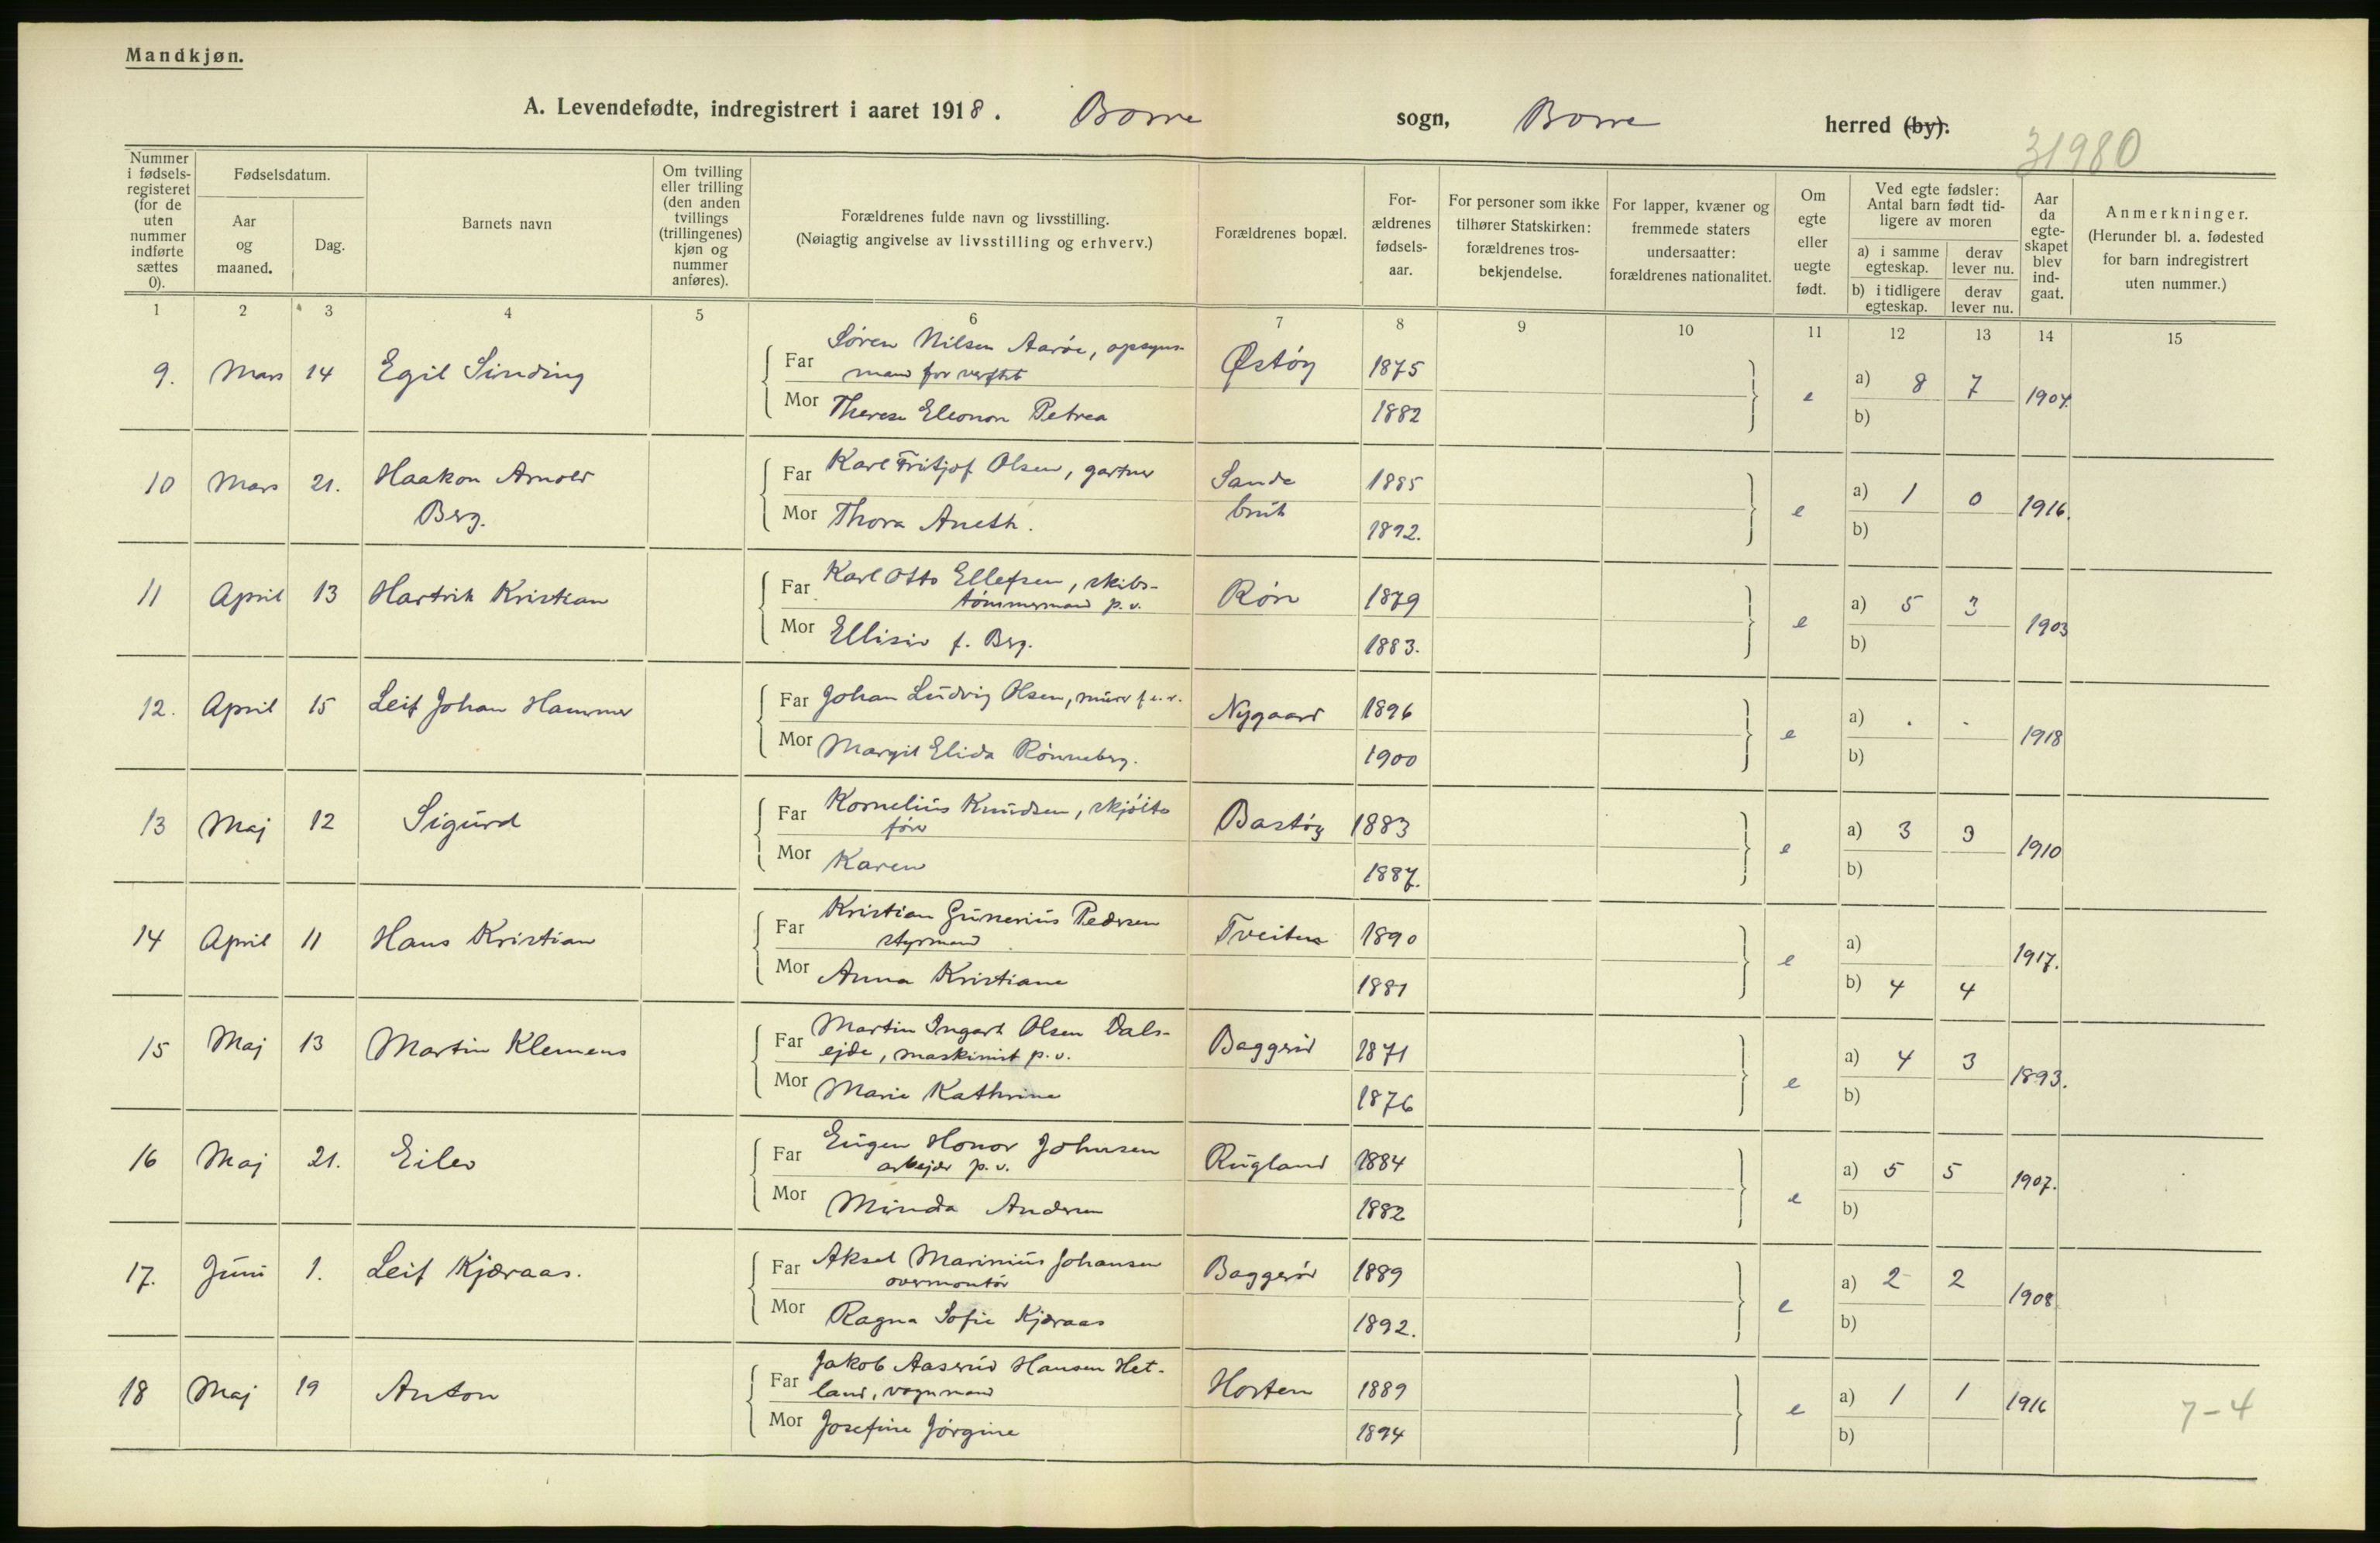 Mandkjøn.
A. Levendefødte, indregistrert i aaret 1918. Borre sogn, Borre herred (by).
31980
Nummer i fødsels-registeret (for de uten nummer indførte sættes 0).
Fødselsdatum.
Aar og maaned.
Dag.
Barnets navn
Om tvilling eller trilling (den anden tvillings (trillingenes) kjøn og nummer anføres).
Forældrenes fulde navn og livsstilling.
(Nøiagtig angivelse av livsstilling og erhverv.)
Forældrenes bopæl.
For-ældrenes fødsels-aar.
For personer som ikke tilhører Statskirken: forældrenes tros-bekjendelse.
For lapper, kvæner og fremmede staters undersaatter: forældrenes nationalitet.
Om egte eller uegte født.
Ved egte fødsler: Antal barn født tid-ligere av moren
a) i samme egteskap.
derav lever nu.
b) i tidligere egteskap.
derav lever nu.
Aar da egte-skapet blev ind-gaat.
Anmerkninger.
(Herunder bl. a. fødested for barn indregistrert uten nummer.)
1 2 3 4 5 6 7 8 9 10 11 12 13 14 15
9. Mars 14 Egil Sinding Far Søren Nilsen Aarøe, opsyns-
mand for verftet Østøy 1875 e a) 8 7 1904.
Mor Therese Eleonore Petrea 1882 b)
10 Mars 21. Haakon Arnold
Berg.
Far Karl Fritjof Olsen, gartner Sande
bruk 1885 e a) 1 0 1916.
Mor Thora Aneth. 1892. b)
11 April 13 Hartvik Kristian Far Karl Otto Ellefsen, skibs-
tømmermand p. v. Røre 1879 e a) 5 3 1903
Mor Ellisiv f. Berg. 1883. b)
12. April 15 Leif Johan Hammer Far Johan Ludvig Olsen, murer f. e. r. Nygaard 1896 e a) . - 1918
Mor Margit Elida Rønneberg. 1900 b)
13 Maj 12 Sigurd Far Kornelius Knudsen, skjøite
fører Bastøy 1883 e a) 3 3 1910
Mor Karen 1887. b)
14 April 11 Hans Kristian Far Kristian Gunerius Pedersen
styrmand Tveiten 1890 e a) 1917.
Mor Anna Kristiane 1881 b) 4 4
15 Maj 13 Martin Klemens Far Martin Ingart Olsen Dals-
ejde, maskinist p. v. Baggerød 1871 e a) 4 3 1893.
Mor Marie Kathrine 1876 b)
16 Maj 21. Eilev Far Eugen Honor Johnsen
arbejder p. v. Rugland 1884 e a) 5 5 1907.
Mor Minda Andersen 1882 b)
17. Juni 1. Leif Kjæraas. Far Aksel Marinius Johansen
overmontør Baggerød 1889 e a) 2 2 1908
Mor Ragna Sofie Kjæraas 1892. b)
18 Maj 19 Anton Far Jakob Aaserud Hansen Het-
land, vognmand Horten 1889 e a) 1 1 1916
Mor Josefine Jørgine 1894 b)
7-4